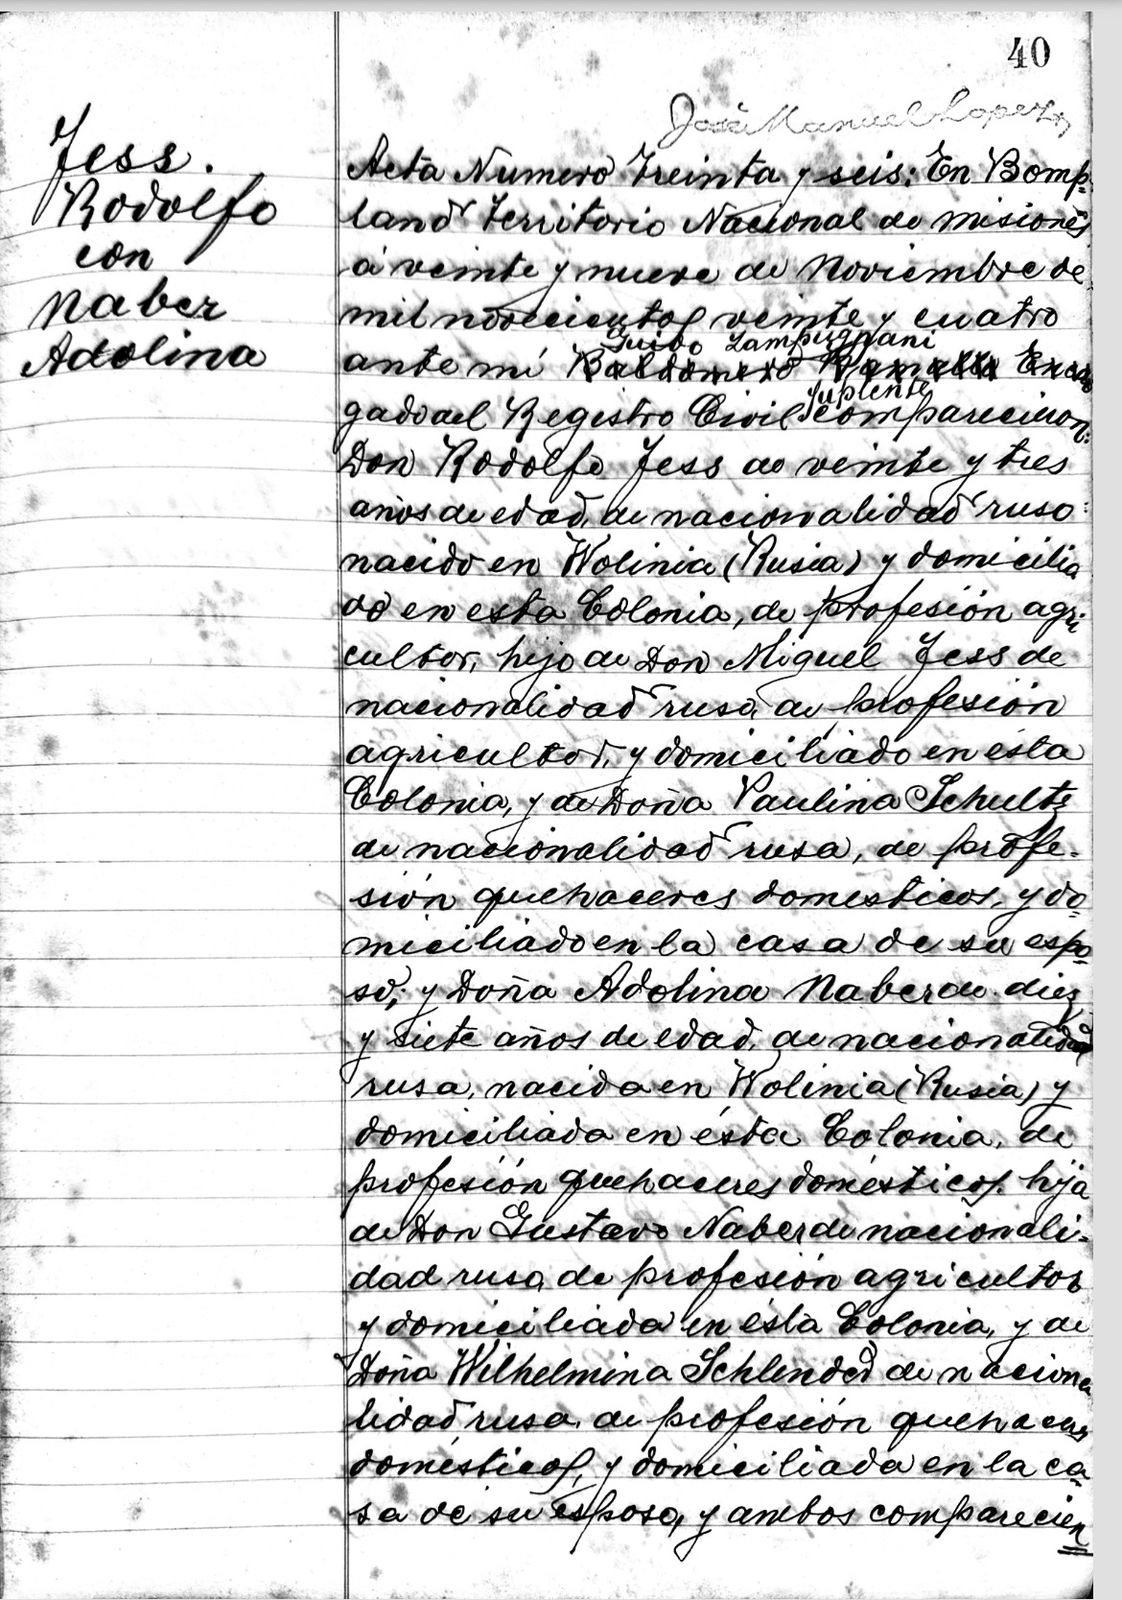 40
José Manuel Lopez
Jess.
Rodolfo
con
Naber
Adolina
Acta Numero Treinta y seis: En Bomp-
land Territorio Nacional de Misiones
á veinte y nueve de Noviembre de
mil novecientos veinte y cuatro
Guido Lampugnani
ante mi Baldomero Encar
suplente
gado del Registro Civil comparecieron:
Don Rodolfo Jess de veinte y tres
años de edad, de nacionalidad ruso
nacido en Wolinia (Rusia) y domicilia
do en esta Colonia, de profesión agri
cultor, hijo de Don Miguel Jess de
nacionalidad ruso, de profesión
agricultor, y domiciliado en ésta
Colonia, y de Doña Paulina Schultz
de nacionalidad rusa, de profe-
sión quehaceres domesticos, y do-
miciliado en la casa de su espo-
so; y Doña Adolina Naber de diez
y siete años de edad, de nacionalidad
rusa, nacida en Wolinia (Rusia) y
domiciliada en ésta Colonia, de
profesión quehaceres domésticos. hija
de Don Gustavo Naber de nacionali-
dad rusa, de profesión agricultor
y domiciliada en ésta Colonia, y de
Doña Wilhelmina de naciona
lidad rusa, de profesión quehaceres
domésticos, y domiciliada en la ca-
sa de su esposo, y ambos comparecien